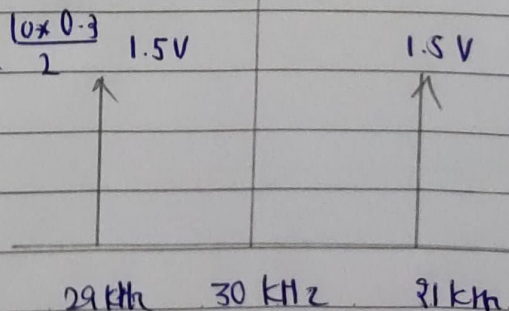 10x 0.3
2
1.5V 1.5 V
29 kHz 30 kHz 31 kHz